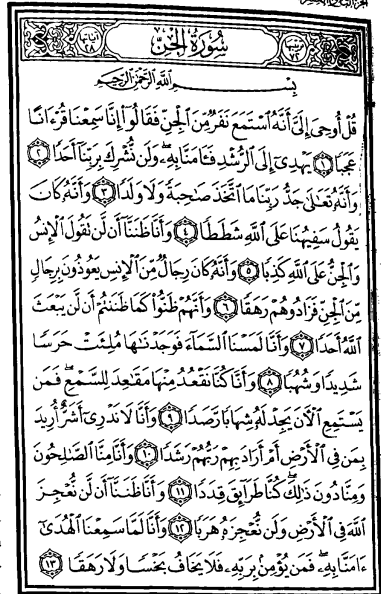 ترتيبها ٧٢
سُورَةُ الجِنّ
آياتها ٢٨
بِسْمِ ٱللَّهِ ٱلرَّحْمَٰنِ ٱلرَّحِيمِ
قُلْ أُوحِىَ إِلَىَّ أَنَّهُ ٱسْتَمَعَ نَفَرٌ مِّنَ ٱلْجِنِّ فَقَالُوٓا۟ إِنَّا سَمِعْنَا قُرْءَانًا
عَجَبًا ۝١ يَهْدِىٓ إِلَى ٱلرُّشْدِ فَـَٔامَنَّا بِهِۦ وَلَن نُّشْرِكَ بِرَبِّنَآ أَحَدًا ۝٢
وَأَنَّهُۥ تَعَٰلَىٰ جَدُّ رَبِّنَا مَا ٱتَّخَذَ صَٰحِبَةً وَلَا وَلَدًا ۝٣ وَأَنَّهُۥ كَانَ
يَقُولُ سَفِيهُنَا عَلَى ٱللَّهِ شَطَطًا ۝٤ وَأَنَّا ظَنَنَّآ أَن لَّن تَقُولَ ٱلْإِنسُ
وَٱلْجِنُّ عَلَى ٱللَّهِ كَذِبًا ۝٥ وَأَنَّهُۥ كَانَ رِجَالٌ مِّنَ ٱلْإِنسِ يَعُوذُونَ بِرِجَالٍ
مِّنَ ٱلْجِنِّ فَزَادُوهُمْ رَهَقًا ۝٦ وَأَنَّهُمْ ظَنُّوا۟ كَمَا ظَنَنتُمْ أَن لَّن يَبْعَثَ
ٱللَّهُ أَحَدًا ۝٧ وَأَنَّا لَمَسْنَا ٱلسَّمَآءَ فَوَجَدْنَٰهَا مُلِئَتْ حَرَسًا
شَدِيدًا وَشُهُبًا ۝٨ وَأَنَّا كُنَّا نَقْعُدُ مِنْهَا مَقَٰعِدَ لِلسَّمْعِ فَمَن
يَسْتَمِعِ ٱلْـَٔانَ يَجِدْ لَهُۥ شِهَابًا رَّصَدًا ۝٩ وَأَنَّا لَا نَدْرِىٓ أَشَرٌّ أُرِيدَ
بِمَن فِى ٱلْأَرْضِ أَمْ أَرَادَ بِهِمْ رَبُّهُمْ رَشَدًا ۝١٠ وَأَنَّا مِنَّا ٱلصَّٰلِحُونَ
وَمِنَّا دُونَ ذَٰلِكَ كُنَّا طَرَآئِقَ قِدَدًا ۝١١ وَأَنَّا ظَنَنَّآ أَن لَّن نُّعْجِزَ
ٱللَّهَ فِى ٱلْأَرْضِ وَلَن نُّعْجِزَهُۥ هَرَبًا ۝١٢ وَأَنَّا لَمَّا سَمِعْنَا ٱلْهُدَىٰٓ
ءَامَنَّا بِهِۦ فَمَن يُؤْمِنۢ بِرَبِّهِۦ فَلَا يَخَافُ بَخْسًا وَلَا رَهَقًا ۝١٣